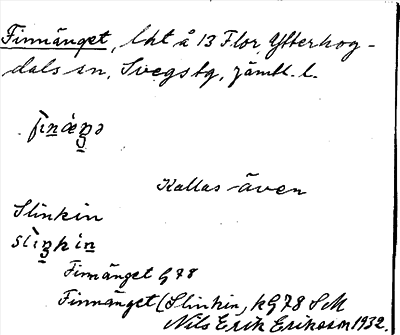 Finnänget, lht å 13 Flor, Ytterhog-
dals sn, Svegs tg, jämtl. l.
Kallas även
Slinkin
Finnänget G78
Finnänget (Slinkin, kG78 SM
Nils Erik Erikson 1932.